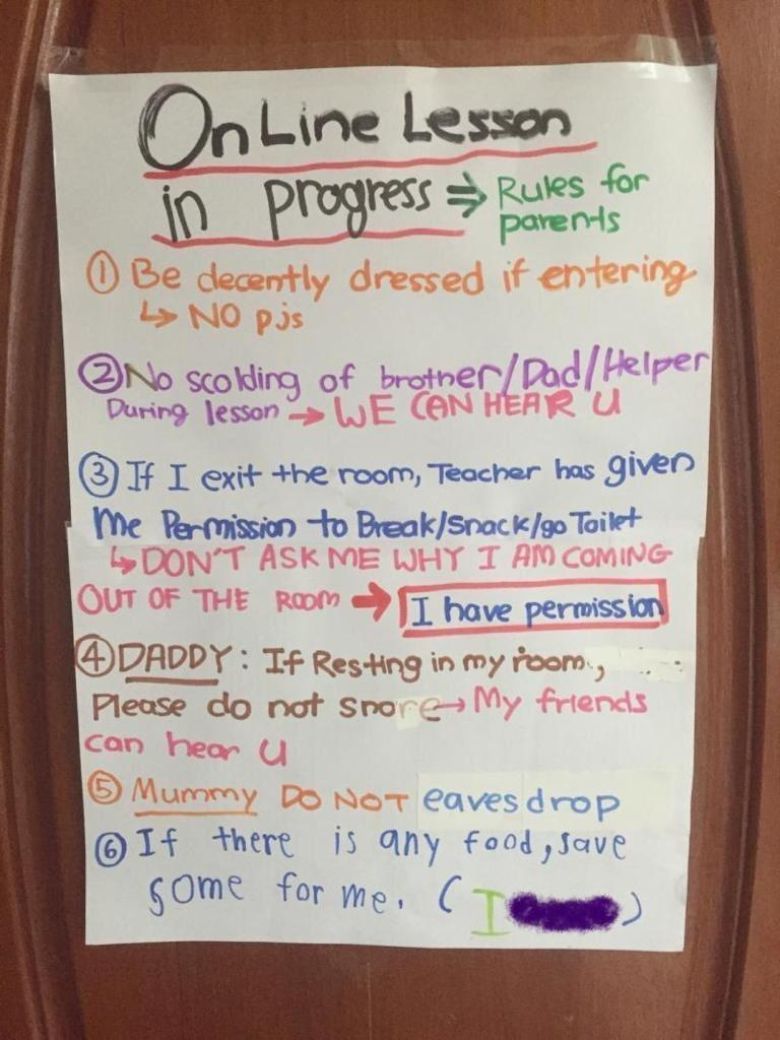 OnLine Lesson
in progress ⇒ Rules for
parents
① Be decently dressed if entering
↳ NO pjs
② No scolding of brother/Dad/Helper
During lesson → WE CAN HEAR U
③ If I exit the room, Teacher has given
Me Permission to Break/Snack/go Toilet
↳ DON'T ASK ME WHY I AM COMING
OUT OF THE ROOM → I have permission
④ DADDY: If Resting in my room,
Please do not snore → My friends
can hear U
⑤ Mummy DO NOT eavesdrop
⑥ If there is any food, save
some for me. (I )